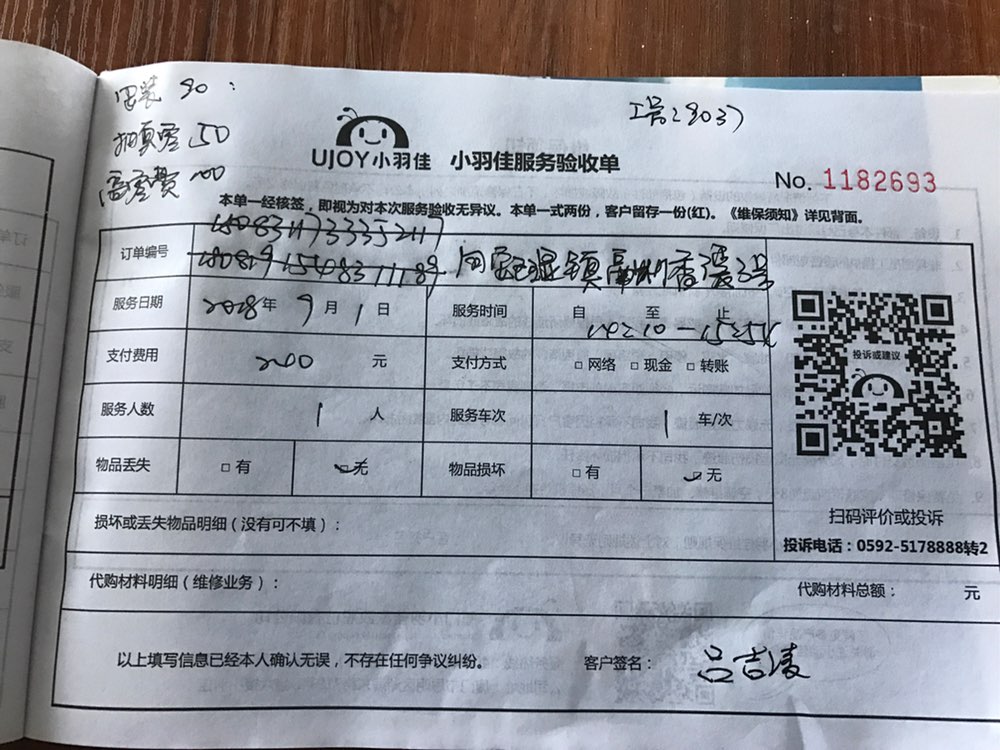 工号:8037
拍真空 50
高空费 100
UJOY小羽佳 小羽佳服务验收单
No. 1182693
本单一经核签，即视为对本次服务验收无异议。本单一式两份，客户留存一份(红)。《维保须知》详见背面。
订单编号
服务日期 2018年 9月 1日 服务时间 自 至 止 14:10-15:54
支付费用 200 元 支付方式 □网络 □现金 □转账
服务人数 1 人 服务车次 1 车/次
物品丢失 □有 无 物品损坏 □有 无
投诉或建议
扫码评价或投诉
投诉电话：0592-5178888转2
损坏或丢失物品明细（没有可不填）：
代购材料明细（维修业务）： 代购材料总额： 元
以上填写信息已经本人确认无误，不存在任何争议纠纷。 客户签名： 吕吉凌